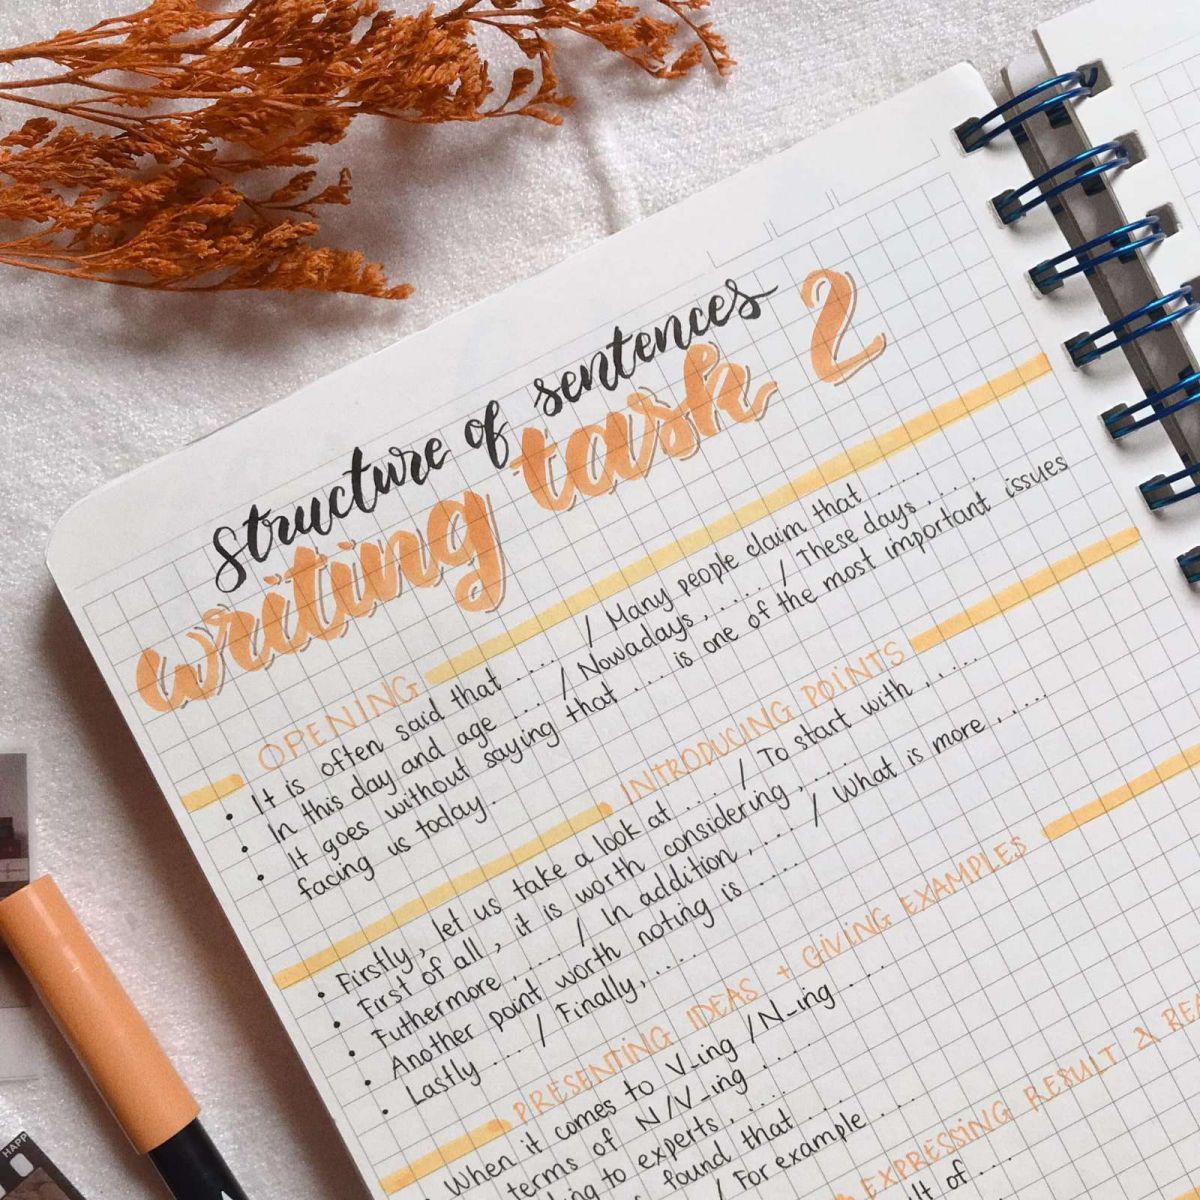 structure of sentences
writing task 2
OPENING
• It is often said that .... / Many people claim that ....
• In this day and age ... / Nowadays, .... / These days ....
• It goes without saying that ... is one of the most important issues
facing us today.
INTRODUCING POINTS
• Firstly, let us take a look at .... / To start with , ....
• First of all , it is worth considering , ....
• Futhermore , .... / In addition , ... / What is more , ....
• Another point worth noting is ....
• Lastly .... / Finally, ....
PRESENTING IDEAS + GIVING EXAMPLES
When it comes to V_ing / N_ing .
terms of N/V_ing .
to experts, ....
found that ....
/ For example ....
EXPRESSING RESULT &
of ....
HAPP